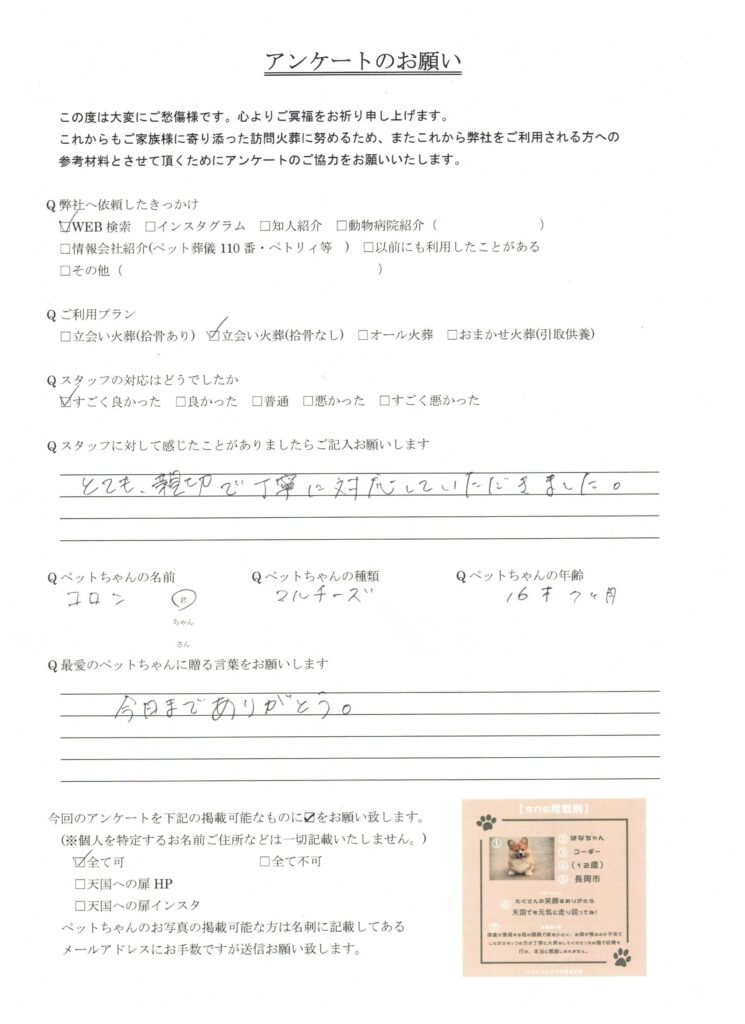 アンケートのお願い
この度は大変にご愁傷様です。心よりご冥福をお祈り申し上げます。
これからもご家族様に寄り添った訪問火葬に努めるため、またこれから弊社をご利用される方への
参考材料とさせて頂くためにアンケートのご協力をお願いいたします。
Q 弊社へ依頼したきっかけ
☑WEB 検索 □インスタグラム □知人紹介 □動物病院紹介（ ）
□情報会社紹介(ペット葬儀 110 番・ペトリィ等 ） □以前にも利用したことがある
□その他（ ）
Q ご利用プラン
□立会い火葬(拾骨あり) ☑立会い火葬(拾骨なし) □オール火葬 □おまかせ火葬(引取供養)
Q スタッフの対応はどうでしたか
☑すごく良かった □良かった □普通 □悪かった □すごく悪かった
Q スタッフに対して感じたことがありましたらご記入お願いします
とても、親切で丁寧に対応していただきました。
Q ペットちゃんの名前 Q ペットちゃんの種類 Q ペットちゃんの年齢
コロン 君 マルチーズ 16才 7ヶ月
ちゃん
さん
Q 最愛のペットちゃんに贈る言葉をお願いします
今日までありがとう。
今回のアンケートを下記の掲載可能なものに☑をお願い致します。
(※個人を特定するお名前ご住所などは一切記載いたしません。)
☑全て可 □全て不可
□天国への扉 HP
□天国への扉インスタ
ペットちゃんのお写真の掲載可能な方は名刺に記載してある
メールアドレスにお手数ですが送信お願い致します。
【sns掲載例】
①
② はなちゃん
③ コーギー
④ （12歳）
⑤ 長岡市
⑥ たくさんの笑顔をありがとう
天国でも元気に走り回ってね!
⑦